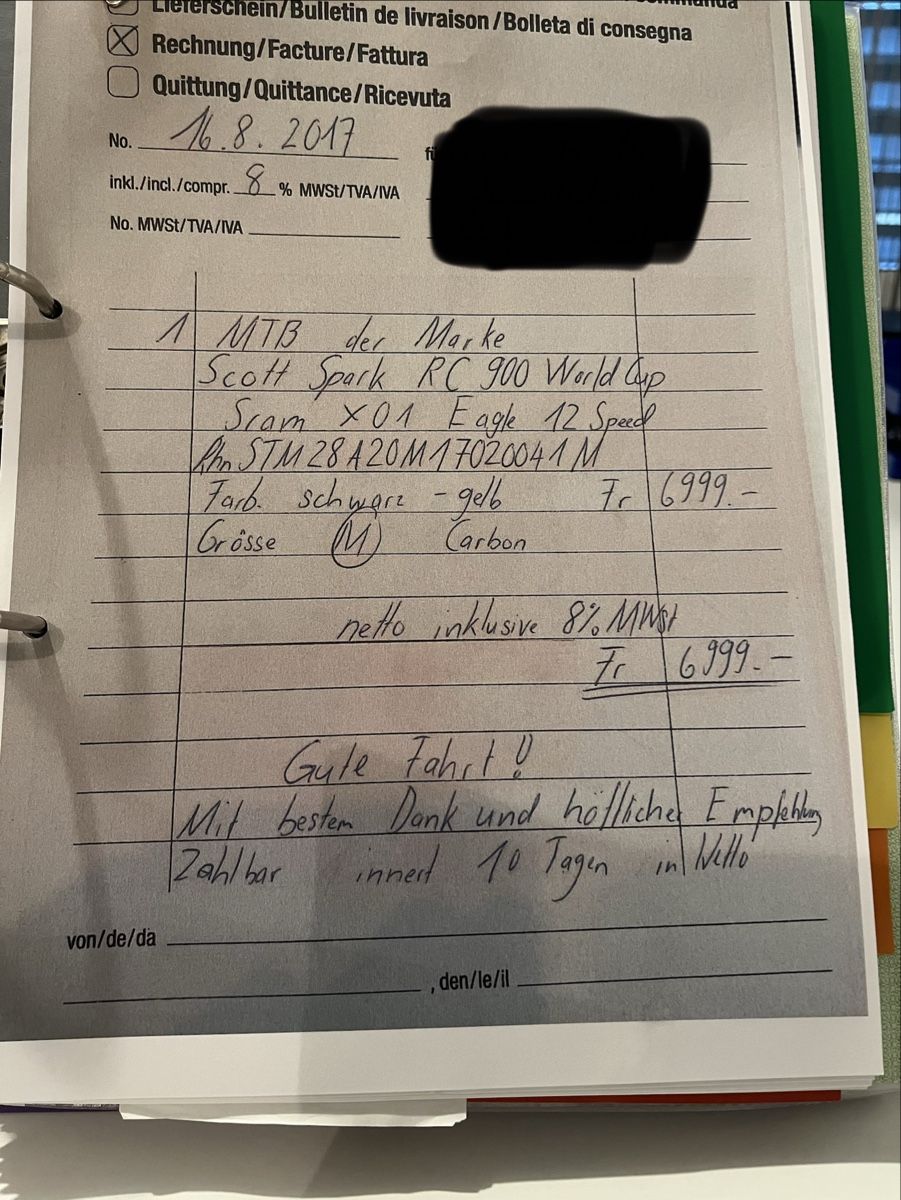 Lieferschein/Bulletin de livraison/Bolleta di consegna
Rechnung/Facture/Fattura
Quittung/Quittance/Ricevuta
No. 16.8.2017
inkl./incl./compr. 8 % MWSt/TVA/IVA
No. MWSt/TVA/IVA
1 MTB der Marke
Scott Spark RC 900 World Cup
Sram X01 Eagle 12 Speed
Rhn STM28A20M17020041M
Farb. schwarz - gelb Fr 6999.-
Grösse M Carbon
netto inklusive 8% MWSt
Fr 6999.-
Gute Fahrt!!
Mit bestem Dank und höflicher Empfehlung
Zahlbar innert 10 Tagen in Netto
von/de/da
, den/le/il